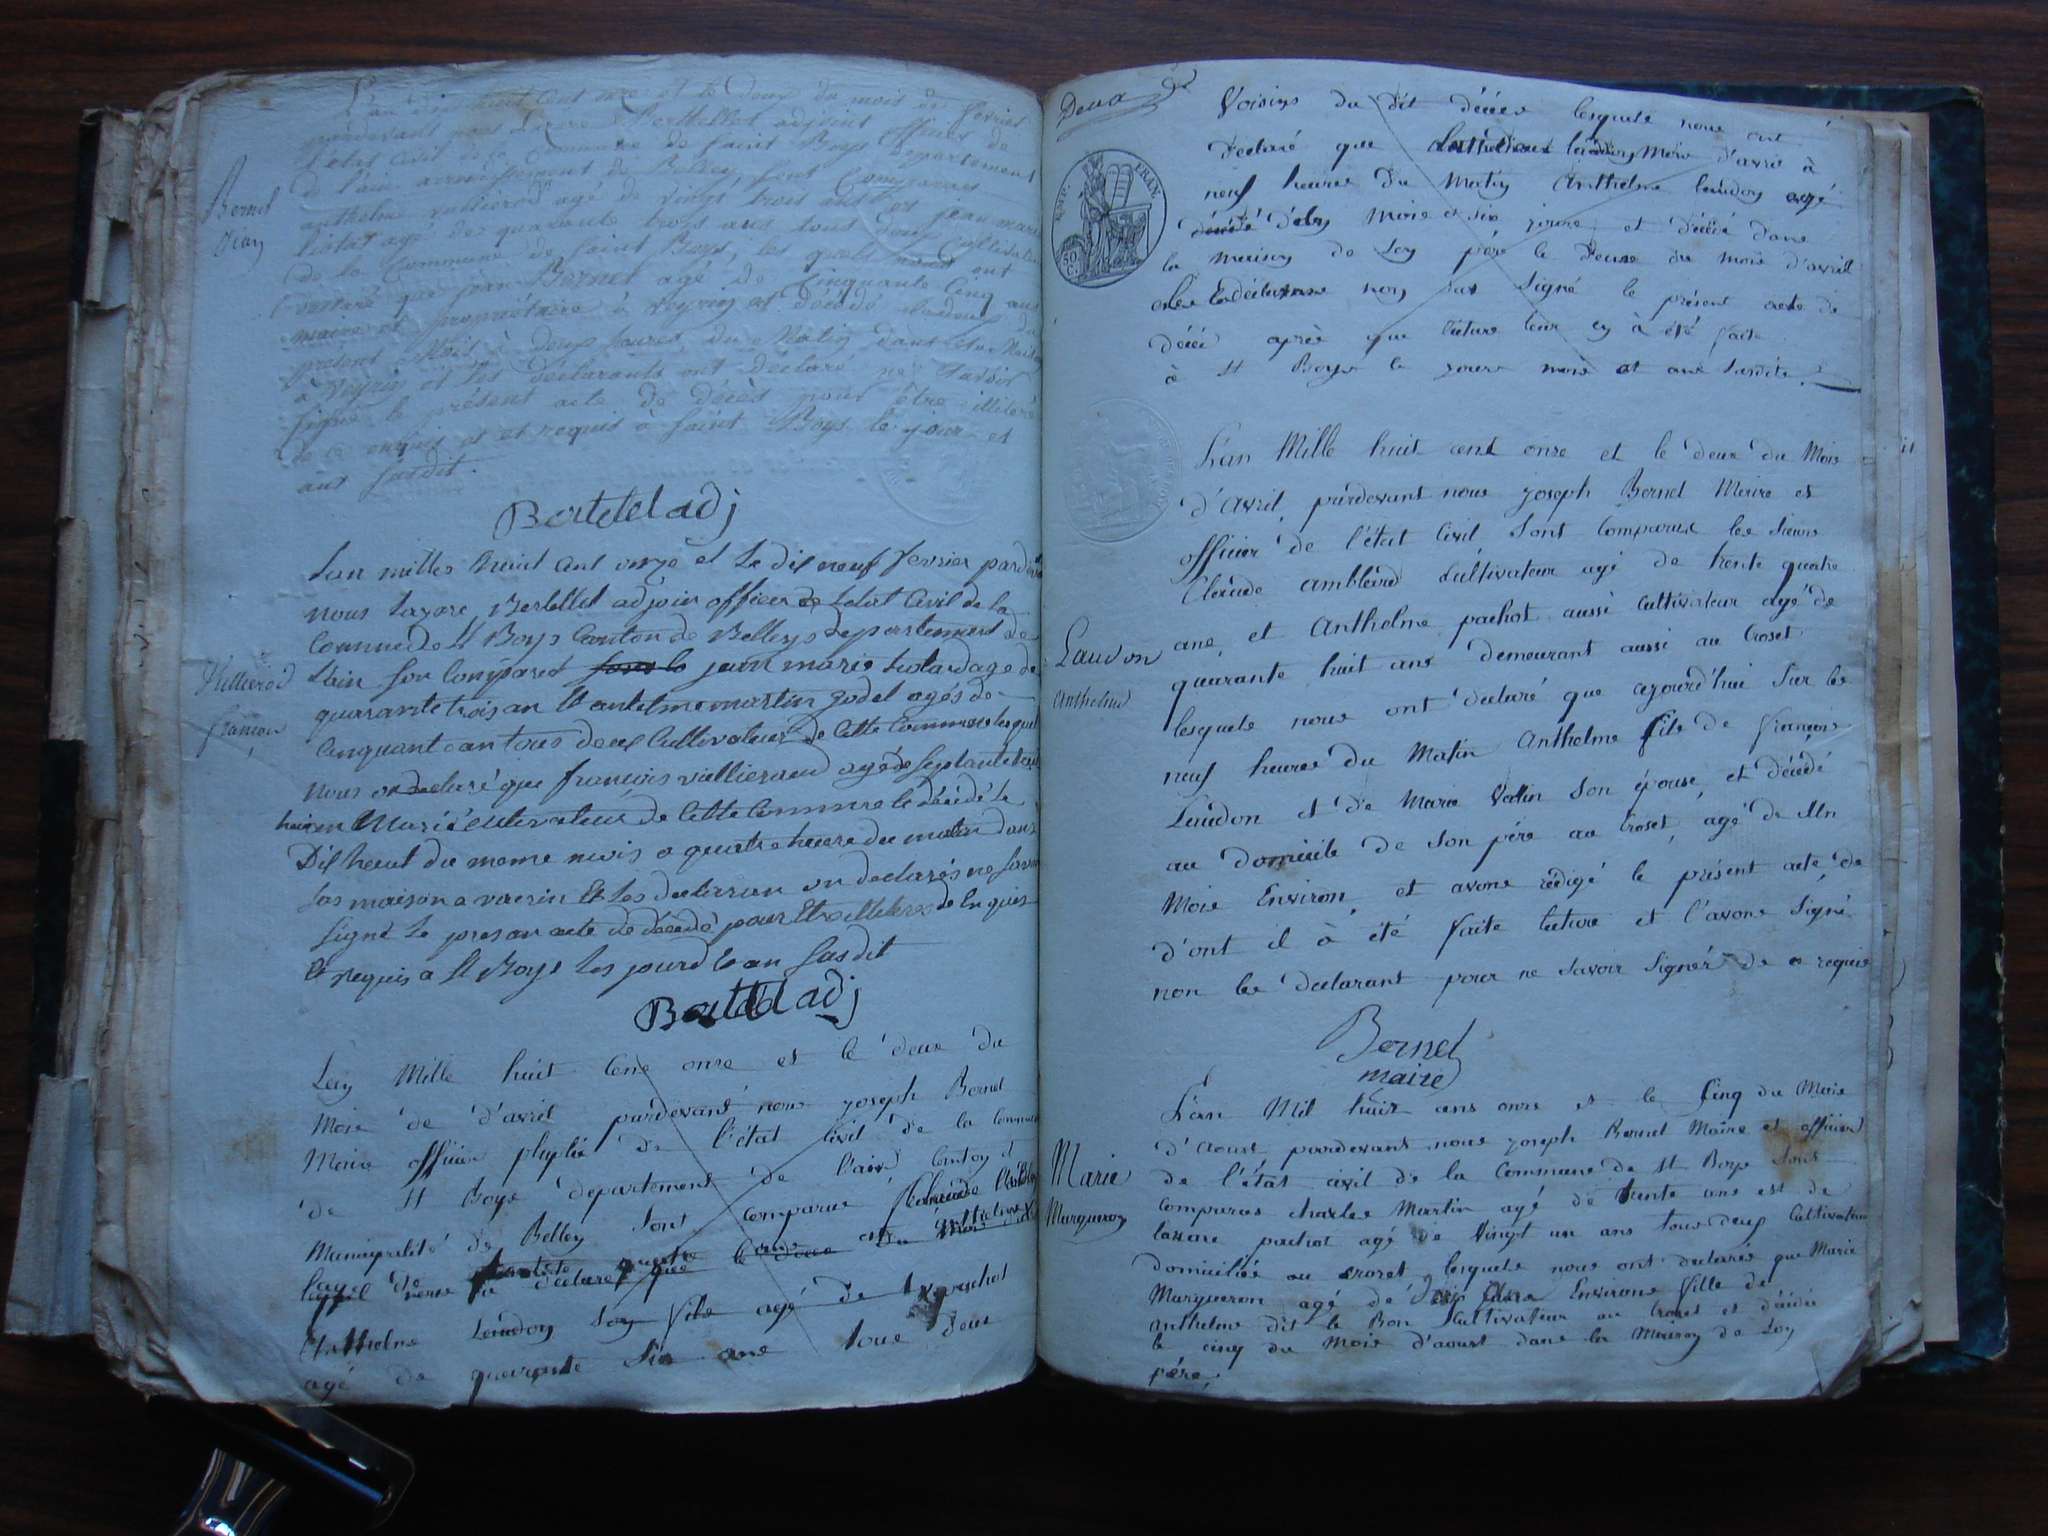 L'an dix huit cent onze et le deux du mois de fevrier
pardevant nous Lazare Berthellet adjoint officier de
l'etat Civil de la Commune de saint Boys departement
de l'ain arrondissement de Belley sont Comparus
anthelme vullierod agé de vingt trois ans et jean marie
agé de quarante trois ans tous deux Cultivateurs
de la Commune de saint Boys, les quels nous ont
declaré que jean Bernet agé de Cinquante Cinq ans
maire et propriétaire à veyrin et décédé
present Mois à deux heures du Matin dans sa Maison
à veyrin et les declarants ont déclaré ne savoir
signé le présent acte de décès pour être illiteré
de ce enquis et et requis à saint Boys le jour et
ant susdit.
Bernet
Jean
Bertelel adj
Lan milles huit cent onze et Le dix neuf fevrier pardevant
nous Lazare Berthellet adjoin officier de Letat Civil de la
Commune de St Boys Canton de Belleys departement de
Lain son Comparut jean marie agé de
quarante trois an Et antelme martin godet agés de
Cinquant an tous deux Cultivateur de Cette Commune lesquel
nous on declaré que françois vullieraud agé de septante
Marié Cultivateur de Cette Commune le décédé Le
Dix heut du meme mois a quatre heure du matin dans
sas maison a vairin Et Les declaran on declarés ne savoir
signé Le presan acte de décédé pour Etre illiteres de En quis
Et requis a St Boys Les jour d Et an susdit
Vullierod
françois
Bertelel adj
Lan Mille huit Cent onze et le deux du
Mois de d'avril pardevant nous joseph Bernet
Maire officier de l'état Civil de la Commune
de St Boys departement de l'ain Canton et
Municipalité de Belley sont comparus Claude
Anthelme Laudon son fils agé de pachot
agé de quarante six ans tous deux
Deux
EMP. FRAN.
50 C.
Voisins du dit décéés lesquels nous ont
declaré que Mois d'avril à
neuf heures du Matin Anthelme Laudon agé
d'eun Mois et six jours et décédé dans
la Maison de son père le deuxe du mois d'avril
et les declarans non pas signé le présent acte de
décéé après que lecture leur en à été faite
à St Boys le jours mois et ans susdits.
L'an Mille huit cent onze et le deux du Mois
d'avril, pardevant nous joseph Bernet Maire et
officier de l'état Civil sont Comparus les sieurs
Claude amblard Cultivateur agé de trente quatre
ans, et Anthelme pachot aussi Cultivateur agé de
quarante huit ans demeurant aussi au Croset
lesquels nous ont declaré que ajourd'hui sur les
neuf heures du Matin Anthelme fils de François
Laudon et de Marie Vettin son épouse, et décédé
au domicile de son père au Croset, agé de Un
Mois Environ, et avons rédigé le présent acte, de
d'ont il à été faite lecture et l'avons signé
non les declarant pour ne savoir signér de ce requis
Laudon
Anthelme
Bernet
maire
L'an Mil huit cens onze et le Cinq du Mois
d'aoust pardevant nous joseph Bernet Maire et officier
de l'état civil de la Commune de St Boys sont
comparus charles Martin agé de trente ans est de
lazare pachot agé de vingt un ans tous deux Cultivateur
domiciliés au crozet lesquels nous ont declarés que Marie
Margueron agé de Environs fille de
anthelme dit le Bon Cultivateur au Croset et décédée
le cinq du Mois d'aoust dans la Maison de son
père,
Marie
Margueron